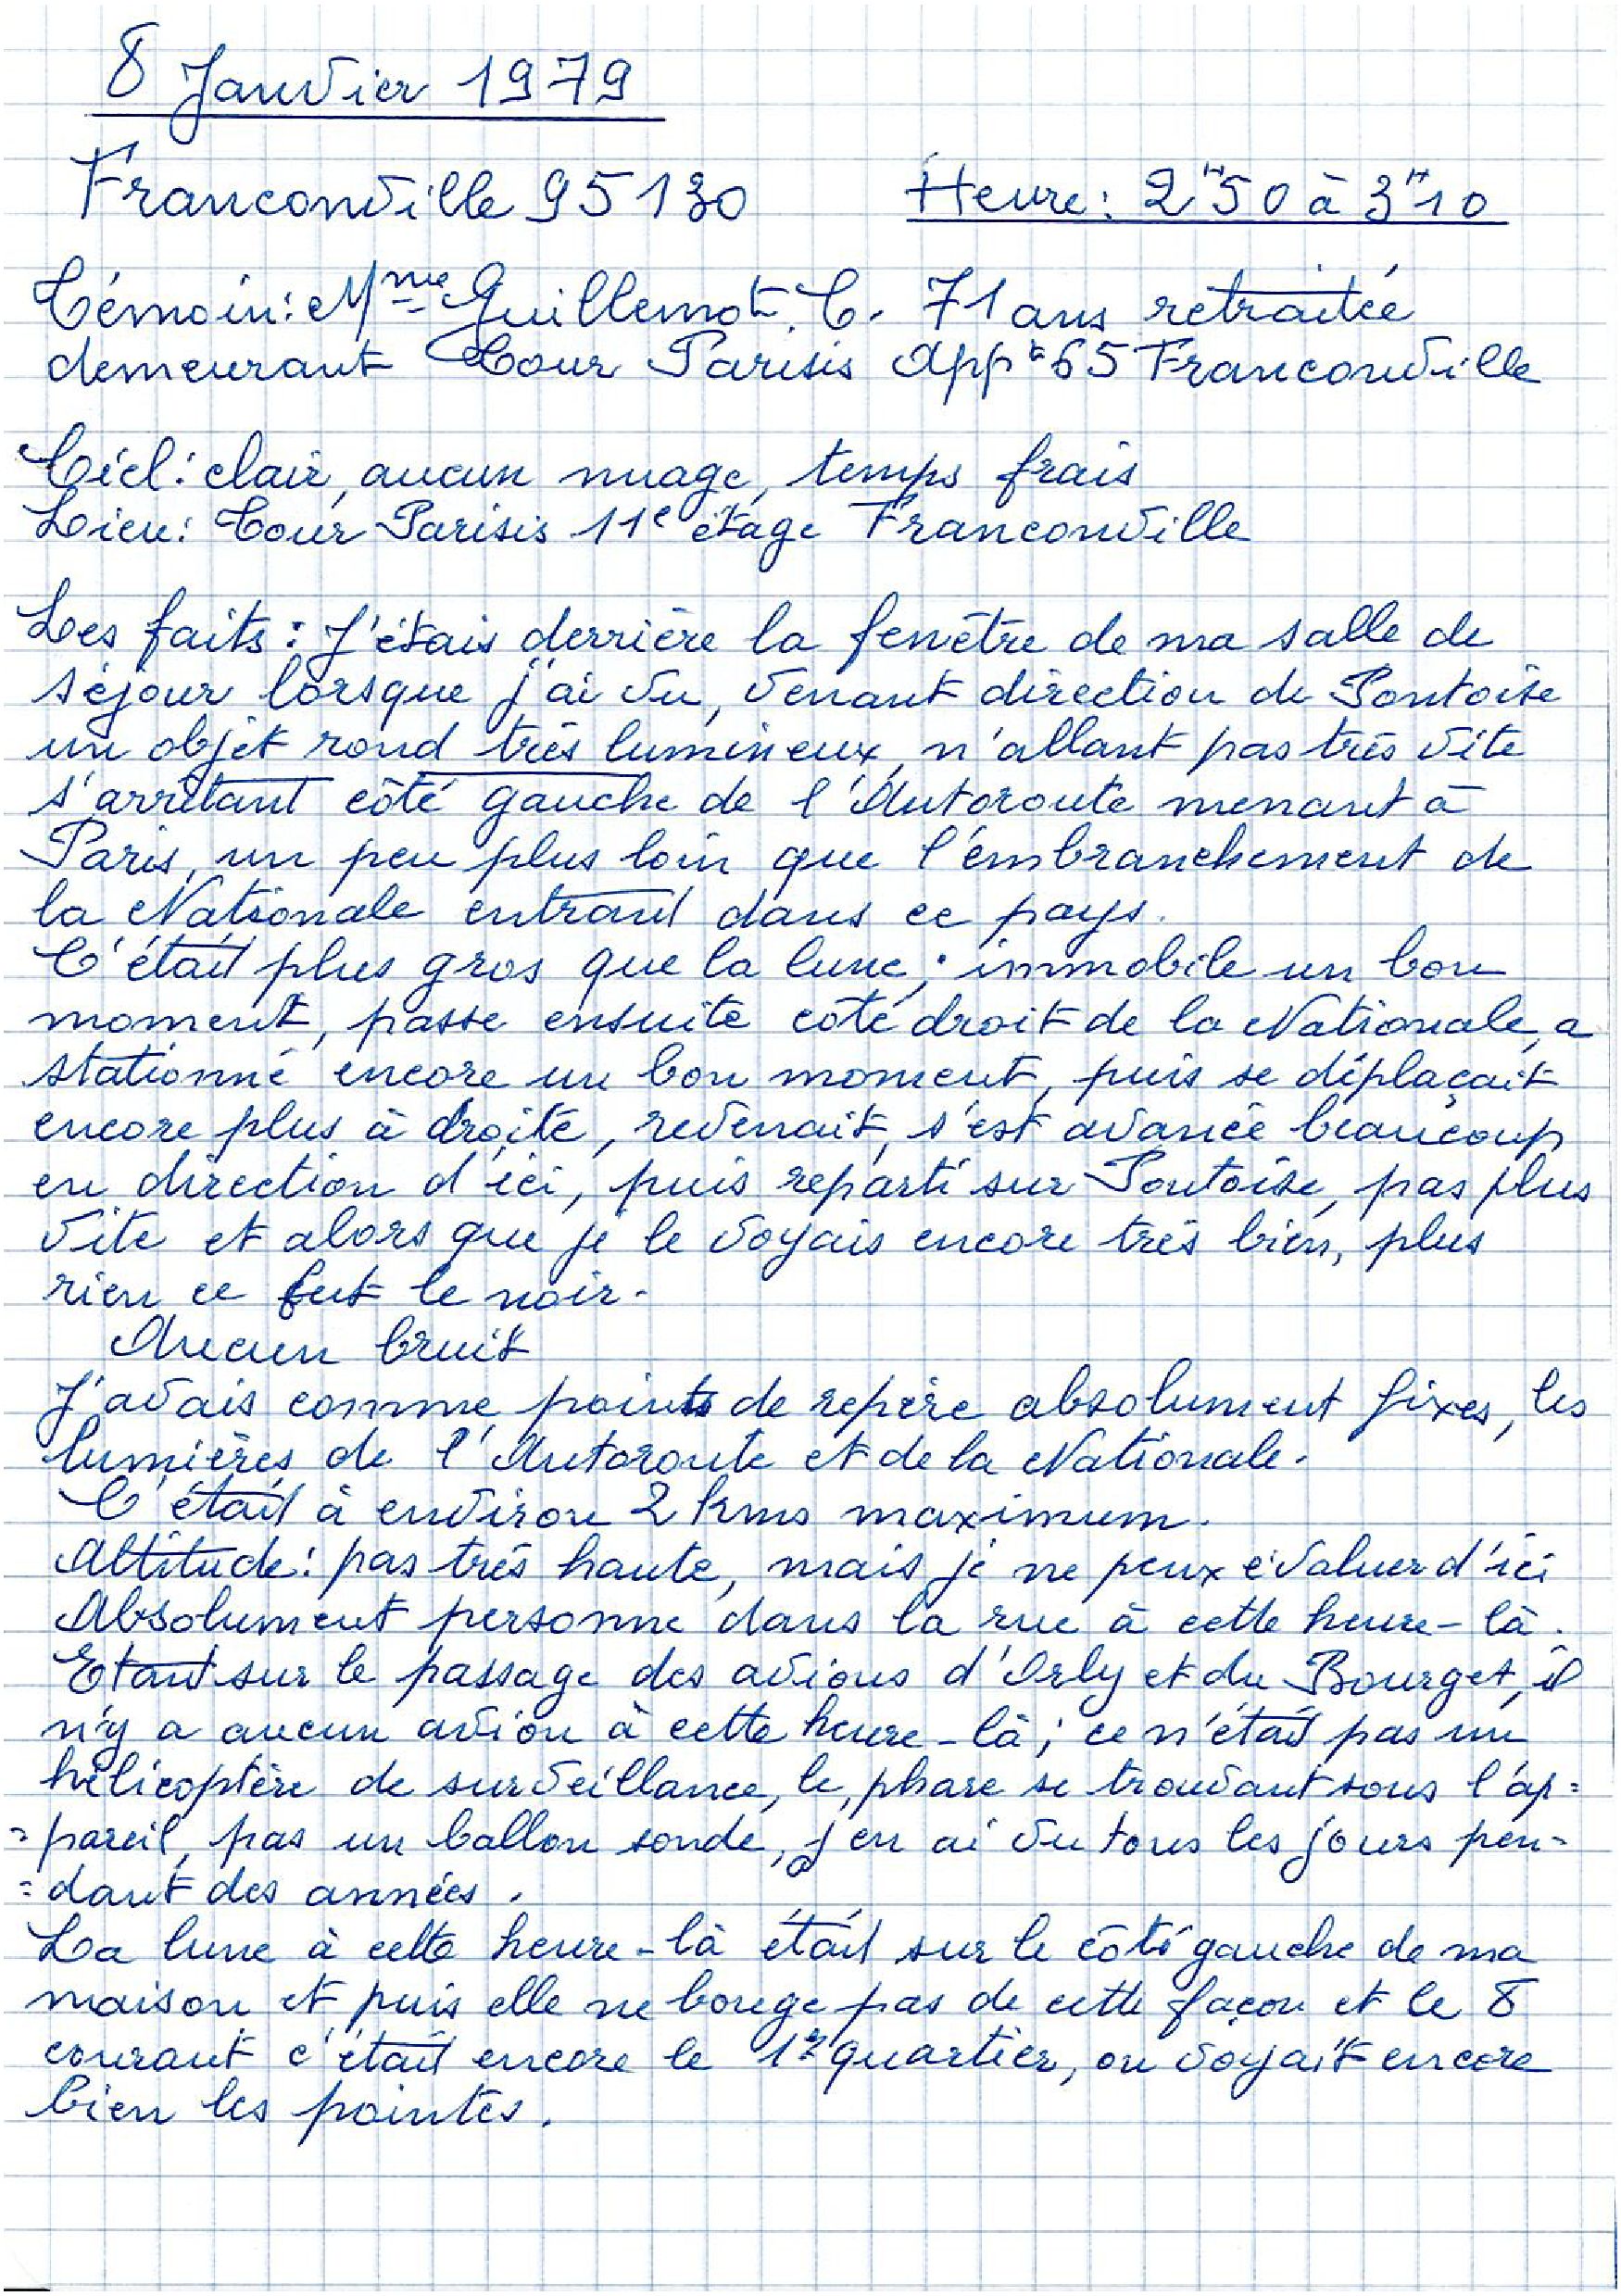 8 Janvier 1979
Franconville 95130 Heure: 2h50 à 3h10
Témoin: Mme Guillemot. C. 71 ans retraitée
demeurant Tour Parisis Appt 65 Franconville
Ciel: clair, aucun nuage, temps frais
Lieu: Tour Parisis 11e étage Franconville
Les faits: J'étais derrière la fenêtre de ma salle de
séjour lorsque j'ai vu, venant direction de Pontoise
un objet rond très lumineux, n'allant pas très vite
s'arrêtant côté gauche de l'Autoroute menant à
Paris, un peu plus loin que l'embranchement de
la Nationale entrant dans ce pays.
C'était plus gros que la lune; immobile un bon
moment, passe ensuite côté droit de la Nationale, a
stationné encore un bon moment, puis se déplaçait
encore plus à droite, revenait, s'est avancé beaucoup
en direction d'ici, puis reparti sur Pontoise, pas plus
vite et alors que je le voyais encore très bien, plus
rien ce fut le noir.
Aucun bruit
J'avais comme points de repère absolument fixes, les
lumières de l'Autoroute et de la Nationale.
C'était à environ 2 kms maximum.
Altitude: pas très haute, mais je ne peux évaluer d'ici
Absolument personne dans la rue à cette heure-là.
Etant sur le passage des avions d'Orly et du Bourget, il
n'y a aucun avion à cette heure-là; ce n'était pas un
hélicoptère de surveillance, le phare se trouvant sous l'ap=
=pareil, pas un ballon sonde, j'en ai vu tous les jours pen=
=dant des années.
La lune à cette heure-là était sur le côté gauche de ma
maison et puis elle ne bouge pas de cette façon et le 8
courant c'était encore le 1er quartier, on voyait encore
bien les pointes.